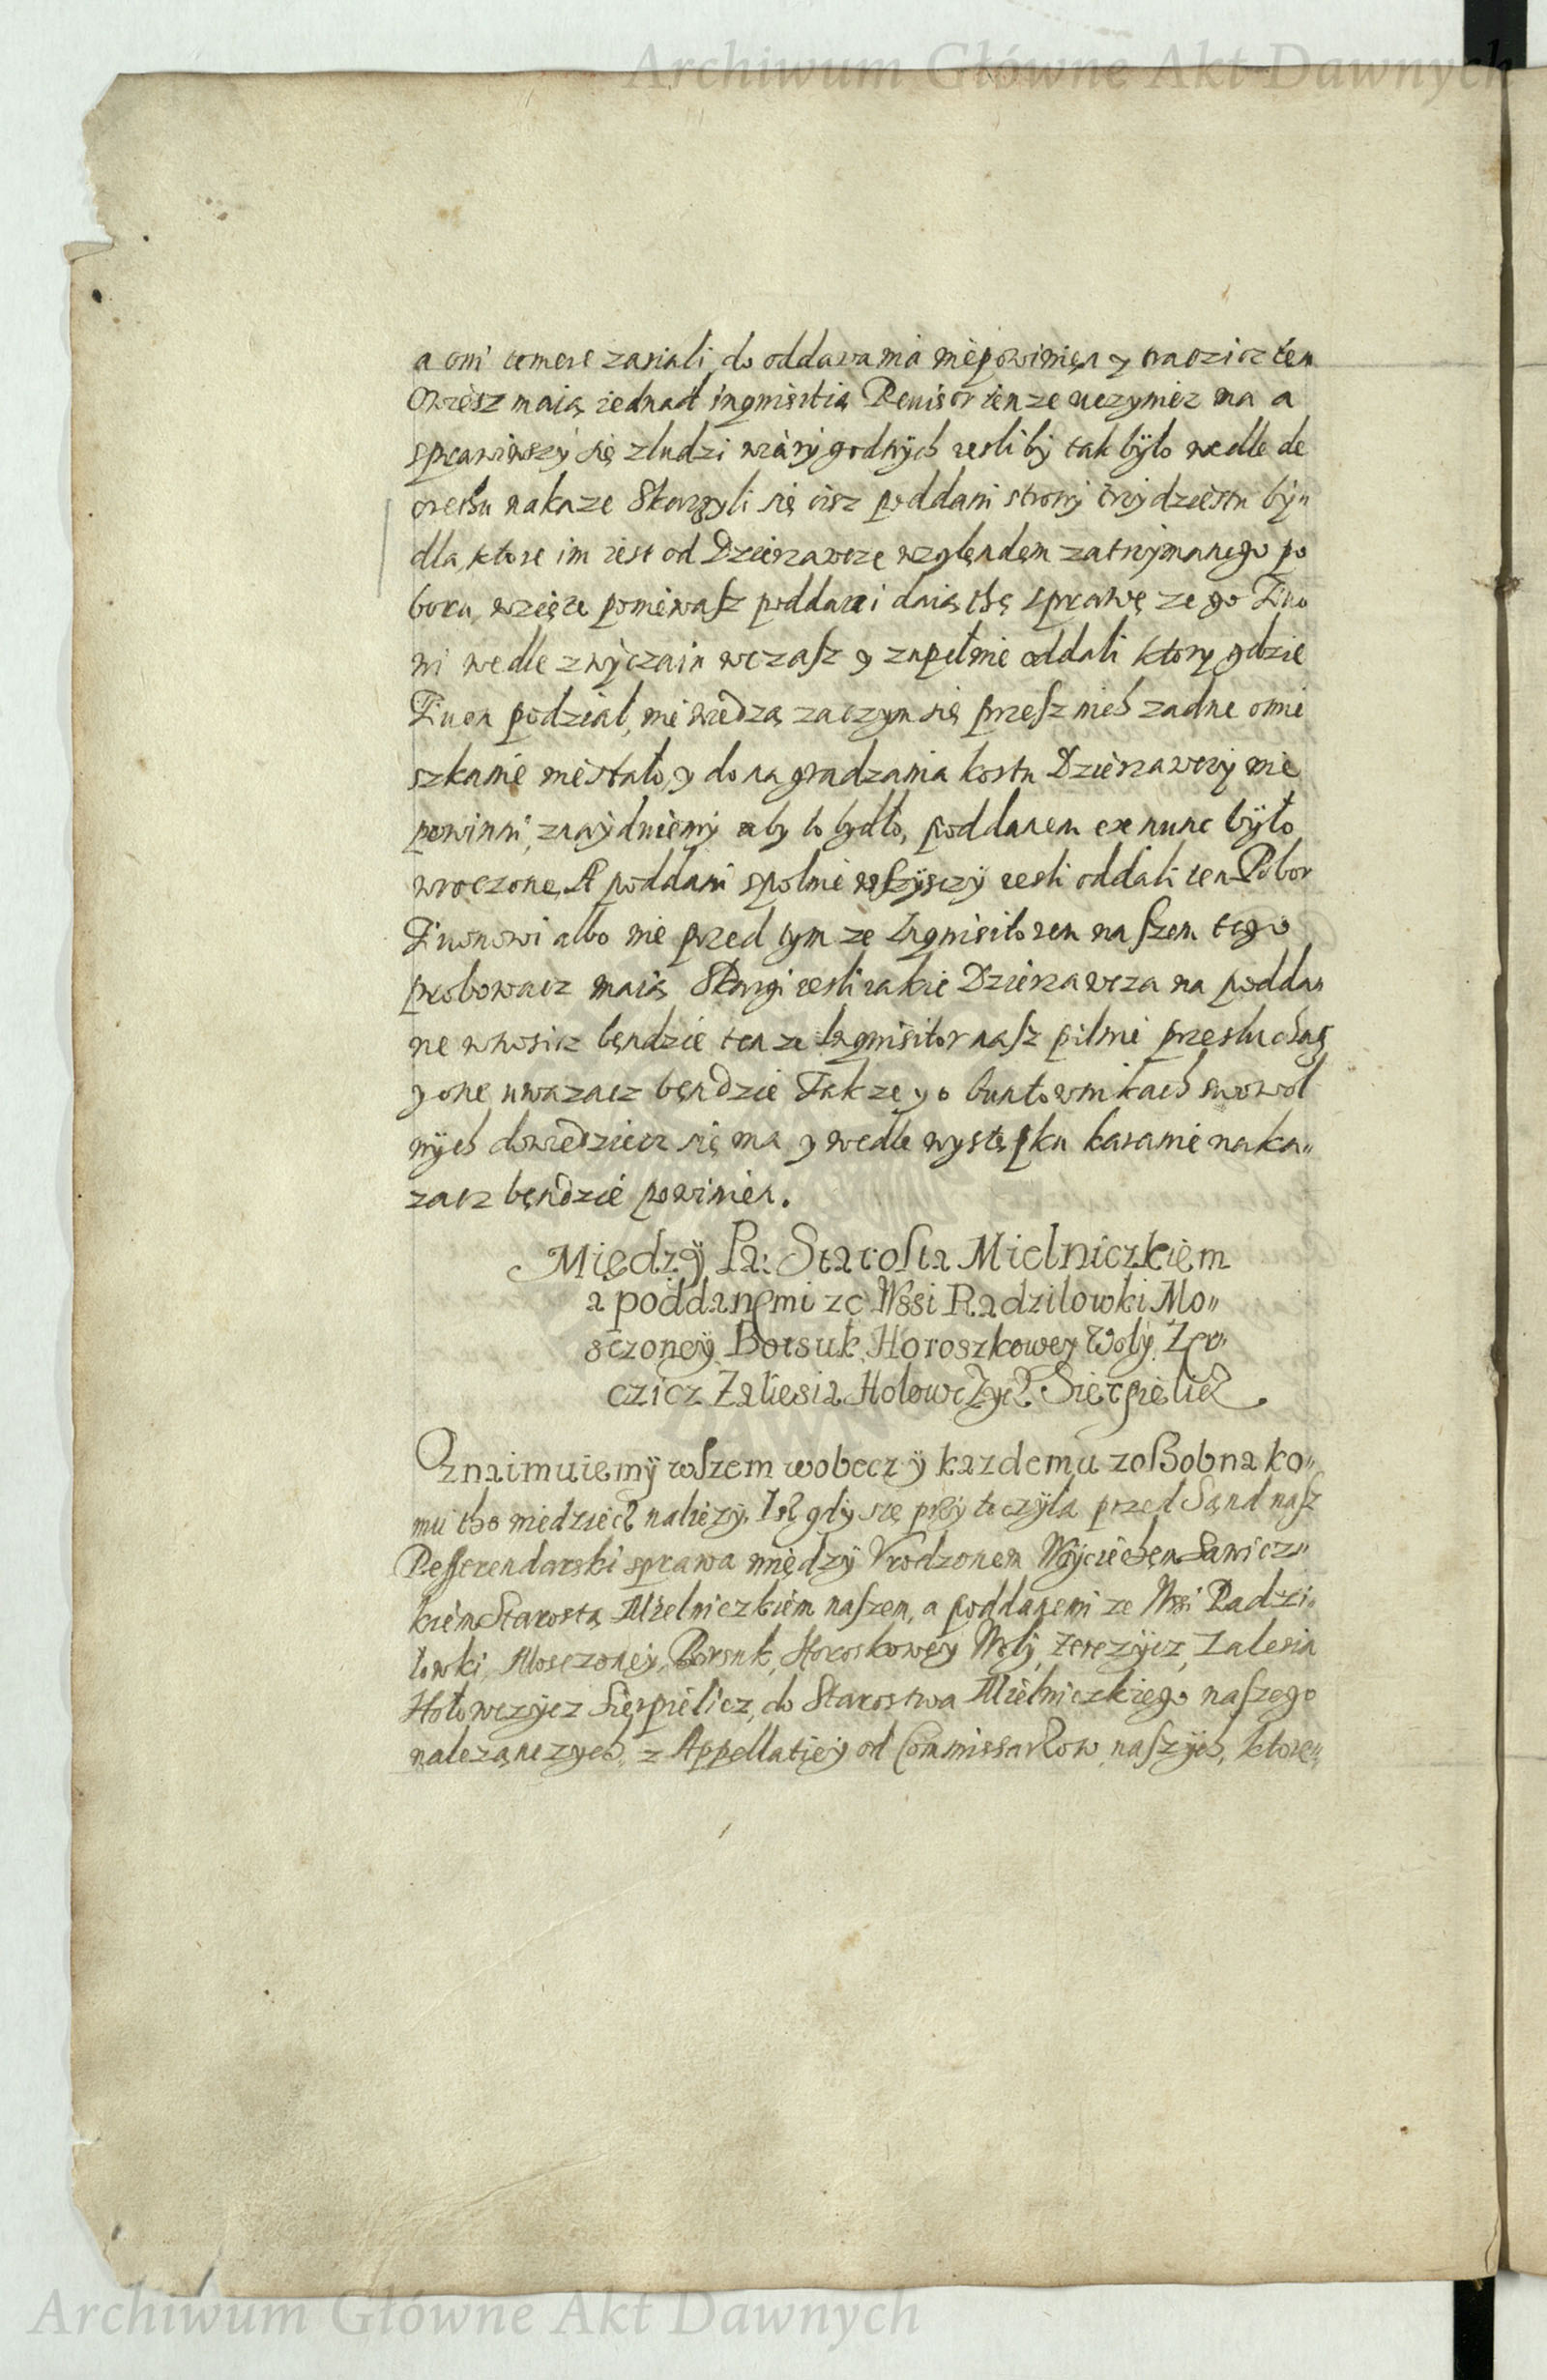 Archiwum Główne Akt Dawnych
a oni temere zasiali, do oddawania niepowinien y traczicz ten
Owiesz maią, iednak inquisitią Reuisor tenze uczynicz ma a
sprawiwszy się zludzi wiary godnych iesli by tak było wedle de
cretu nakaze Skarzyli się tisz poddani strony trzydziestu byn
dla, ktore im iest od Dzierzawcze wzglendem zatrzymanego po
boru, wzięte poniewasz poddani daią thę sprawę ze go Iwo
ni wedle zwyczaiu wczasz y zupełnie oddali ktory gdzie
Iwon podział, nie wiedzą zaczym się przesz nich zadne omie
szkanie niestało, y do nagradzania kosztu Dzierzawczy nie
powinni, znaydniemy aby to bydło, poddanem ex nunc było
wroczone, A poddani spolnie wszysczy iesli oddali ten Pobor
Iwonowi albo nie przed tym ze Inquisitorem naszem tego
probowacz maią Skargi iesli iakie Dzierzawcza na poddan
ne wnosicz bendzie ten ze Inquisitor nasz pilnie przesłuchas
y one uwazacz bęndzie Takze y o buntownikach swowol
nych dowiedziecz się ma y wedle występku karanie naka„
zacz bęndzie powinien.
Między Pa: Starosta Mielniczkiem
a poddanemi ze Wssi Radzilowki Mo„
sczoney Borsuk Horoszkowey Woly Zer„
czicz Zaliesia Holowczycz Sierpielicz
Oznaimuiemy wszem wobecz y kazdemu zoßobna ko„
mu tho wiedziecz nalezy. Isz gdy sie przytoczyla przed Sąnd nasz
Refferendarski sprawa między Vrodzonem Woyciechem Sawicz„
kiem Starostą Mielniczkiem naszem, a poddanemi ze Wssi Radzi„
łowki, Mosczoney, Borsuk, Horoskowey Woly, Zerczycz, Zalesia
Hołowczycz Sierpielicz, do Starostwa Mielniczkiego naszego
nalezanczych, z Appellatiey od Commissarzow naszych, ktore„
Archiwum Główne Akt Dawnych